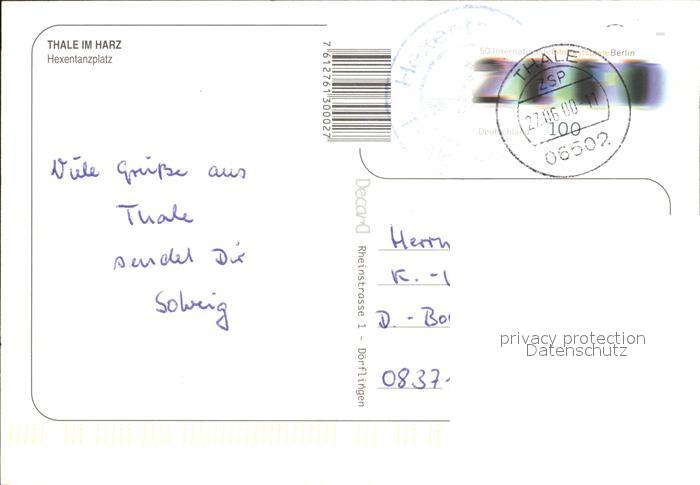 THALE IM HARZ
Hexentanzplatz
7612761300027
50 Internationale Filmfestspiele Berlin
Deutschland
100
THALE
ZSP
27.06.00-11
06502
Viele Grüße aus
Thale
sendet Dir
Solveig
Decard
Rheinstrasse 1 - Dörflingen
Herrn
K. -
D. - Bo
0837
privacy protection
Datenschutz